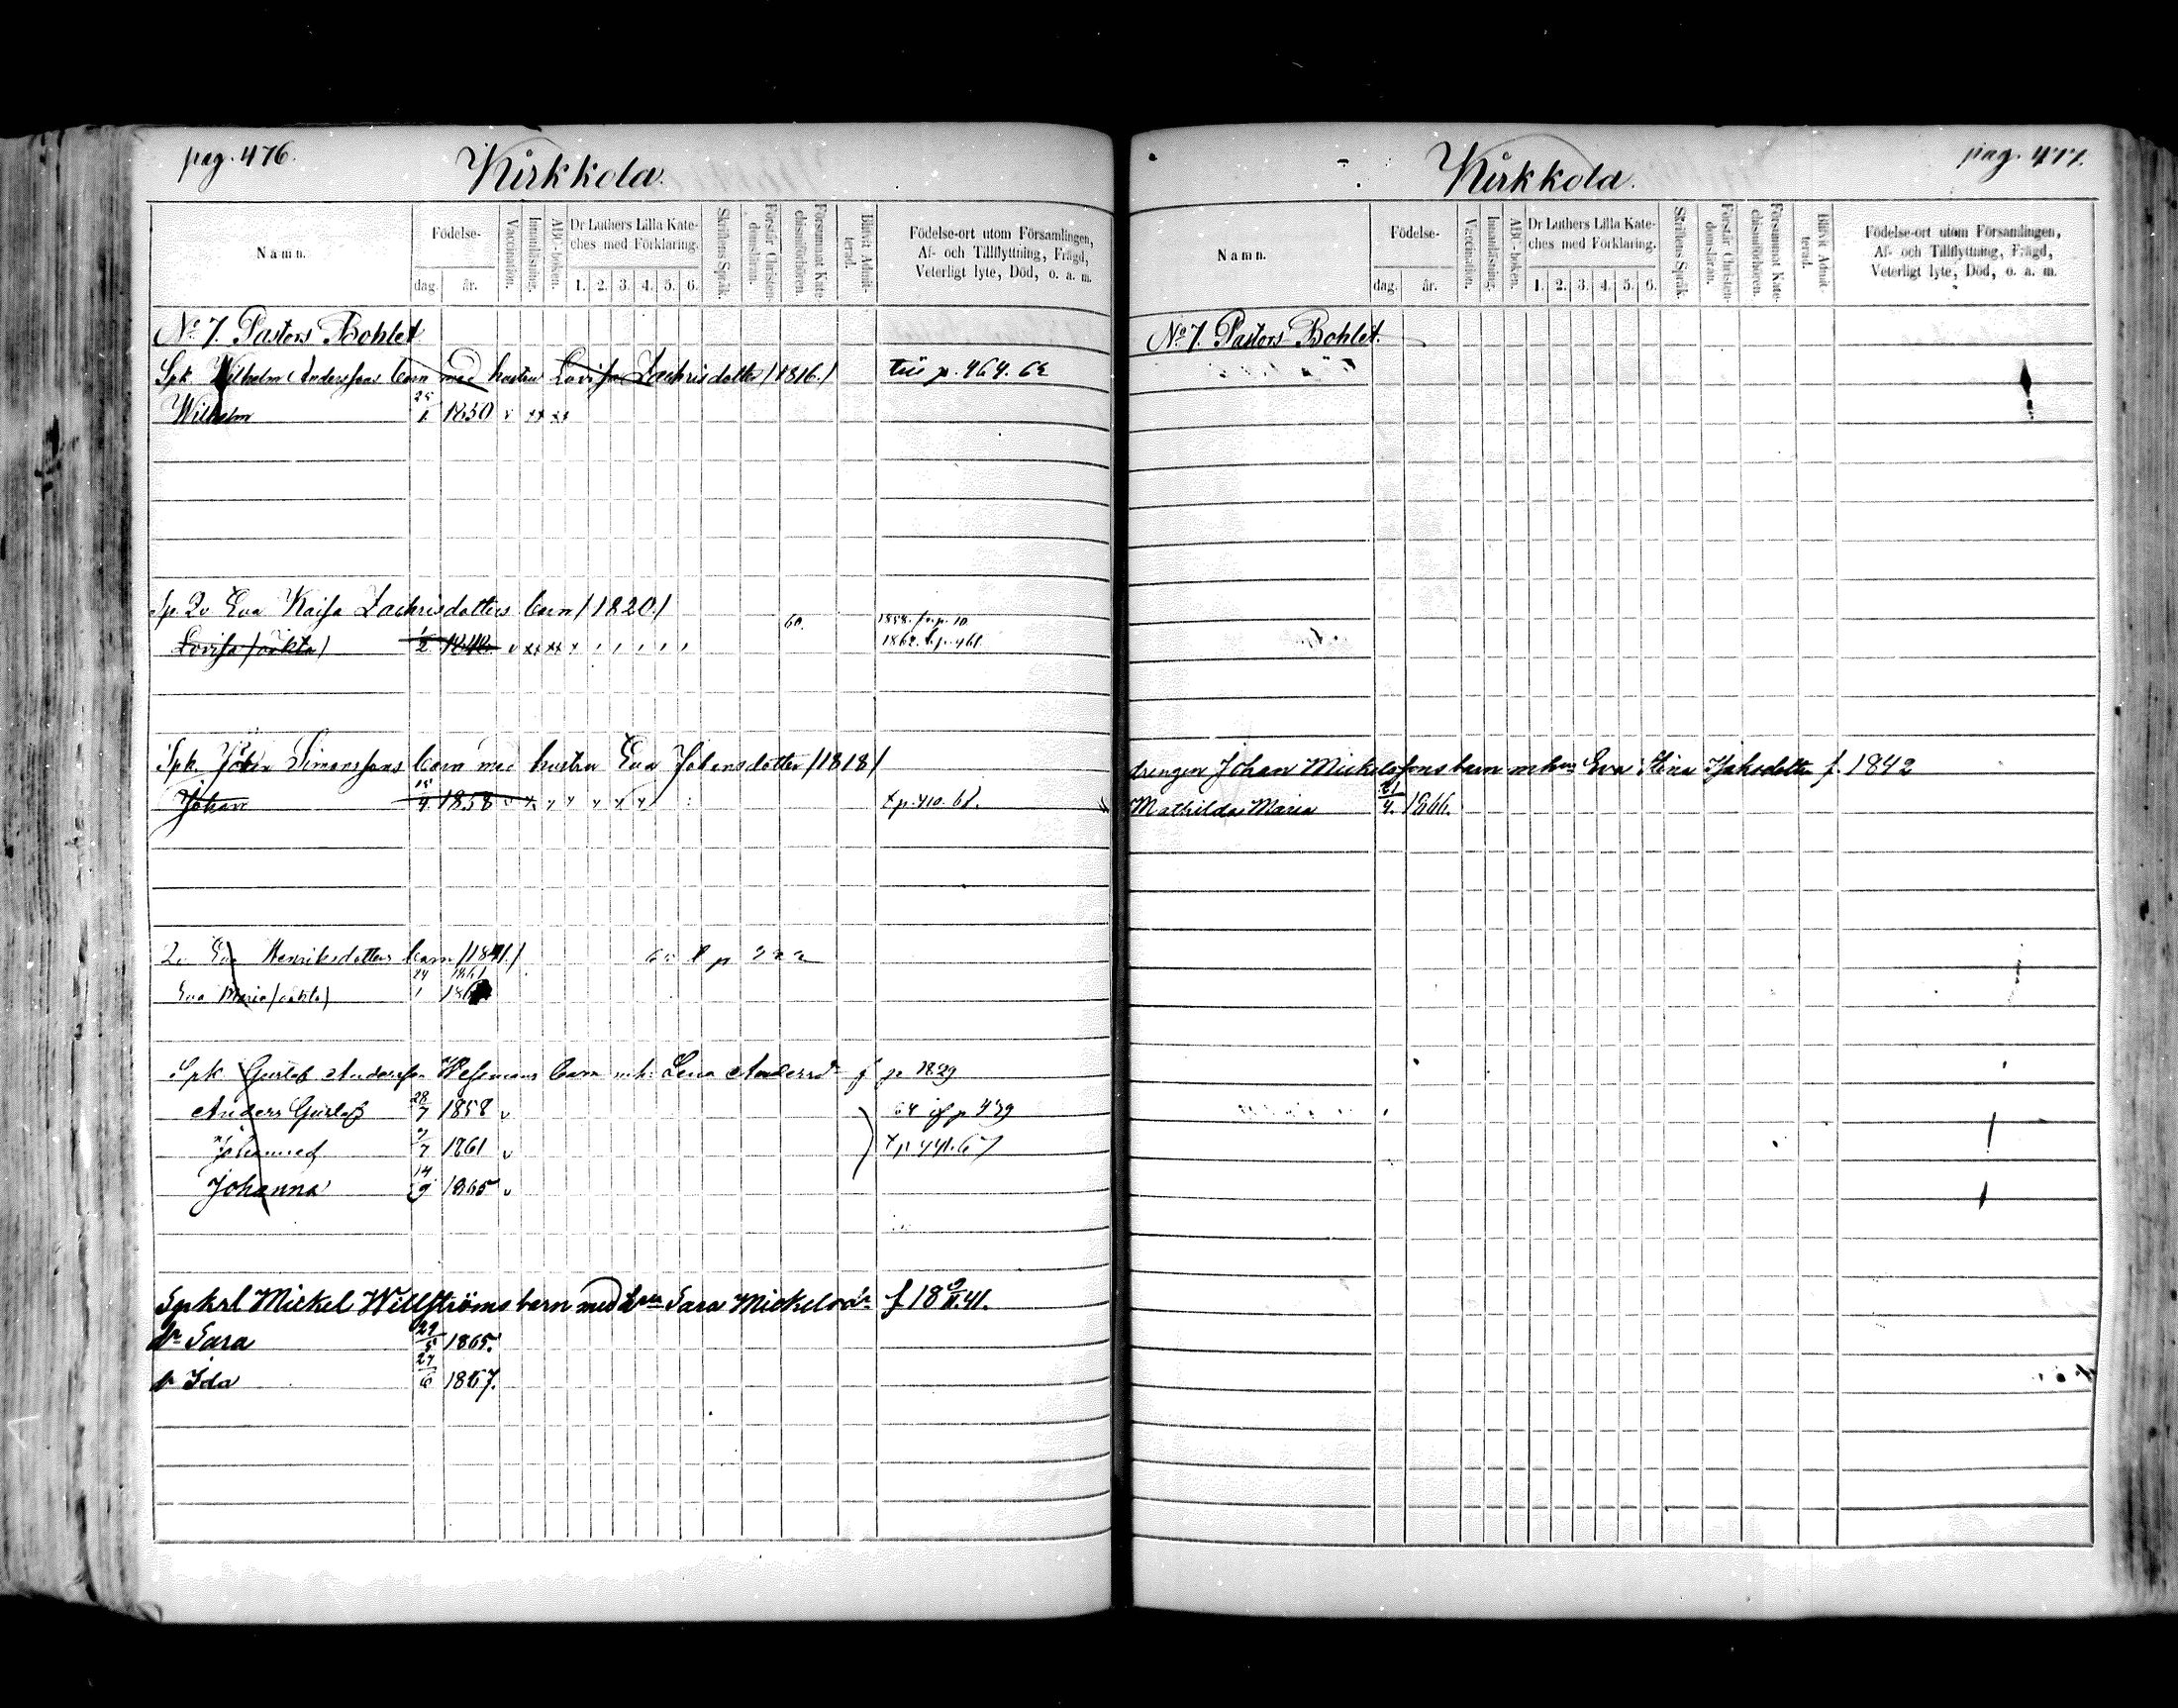 pag. 476.
Kirkkola.
Namn.
Födelse-
dag.
år.
Vaccination.
Innanläsning.
ABC-boken.
Dr Luthers Lilla Kate-
ches med Förklaring.
1. 2. 3. 4. 5. 6.
Skriftens Språk.
Förstår Christen-
domsläran.
Försummat Kate-
chismiförhören.
Blifvit Admit-
terad.
Födelse-ort utom Församlingen,
Af- och Tillflyttning, Frägd,
Veterligt lyte, Död, o. a. m.
No 7. Pastors Bohlet
Spk. Wilhelm Anderssons barn med hustru Lovisa Zachrisdotter /1816./ p. 464. 62
Wilhelm 25/1 1850 v xx xx
Sp. Qv Eva Kaisa Zachrisdotters barn /1820./
Lovisa /oäkta/ 60. 1858. fr. p. 10
1862. t. p. 461.
Spk. Johan Simonssons barn med hustru Eva Johansdotter /1818/
Johan 15/4 1858 t. p. 410. 68.
Qv Eva Henriksdotters barn
Eva Maria /oäkta/ 24/1 1861
Spk. Gustaf Andersson Wessmans barn m. h. Lena Andersdr f 1829
Anders Gustaf 28/7 1858 v 64 if p 439
7 1861 v t p 441. 67
Johanna 14/9 1865 v
Spkrl Mickel Willströms barn med hun Sara Mickelsdr f 18 9/11 41.
dr Sara 29/5 1865.
dr Ida 24/6 1867.
pag. 477.
Kirkkola.
Namn.
Födelse-
dag.
år.
Vaccination.
Innanläsning.
ABC-boken.
Dr Luthers Lilla Kate-
ches med Förklaring.
1. 2. 3. 4. 5. 6.
Skriftens Språk.
Förstår Christen-
domsläran.
Försummat Kate-
chismiförhören.
Blifvit Admit-
terad.
Födelse-ort utom Församlingen,
Af- och Tillflyttning, Frägd,
Veterligt lyte, Död, o. a. m.
No 7. Pastors Bohlet.
drengen Johan Mickelssons barn m hun Eva Stina f. 1842
Mathilda Maria 21/4. 1866.